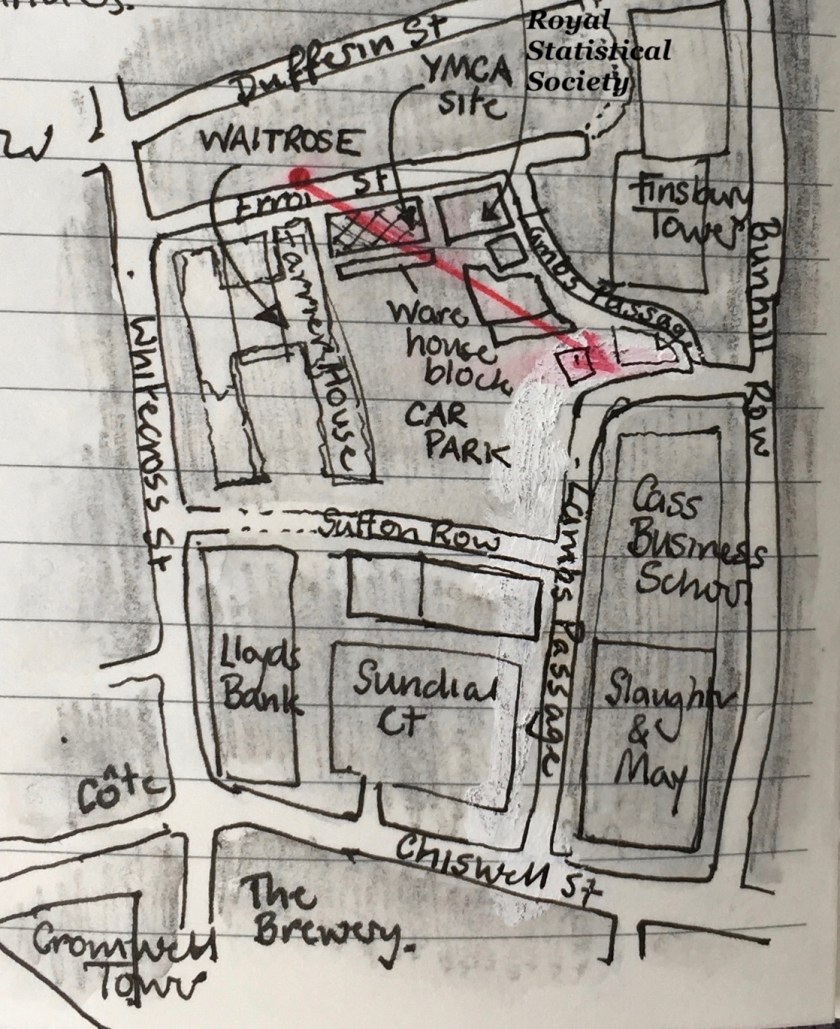 Dufferin St
Royal
Statistical
Society
YMCA
site
WAITROSE
Errol St
Finsbury
Tower
Lambs Passage
Tanners House
Ware
house
block
CAR
PARK
Whitecross St
Bunhill Row
Sutton Row
Lambs Passage
Cass
Business
School
Lloyds
Bank
Sundial
Ct
Slaughtr
&
May
Côte
Chiswell St
The
Brewery.
Cromwell
Towr